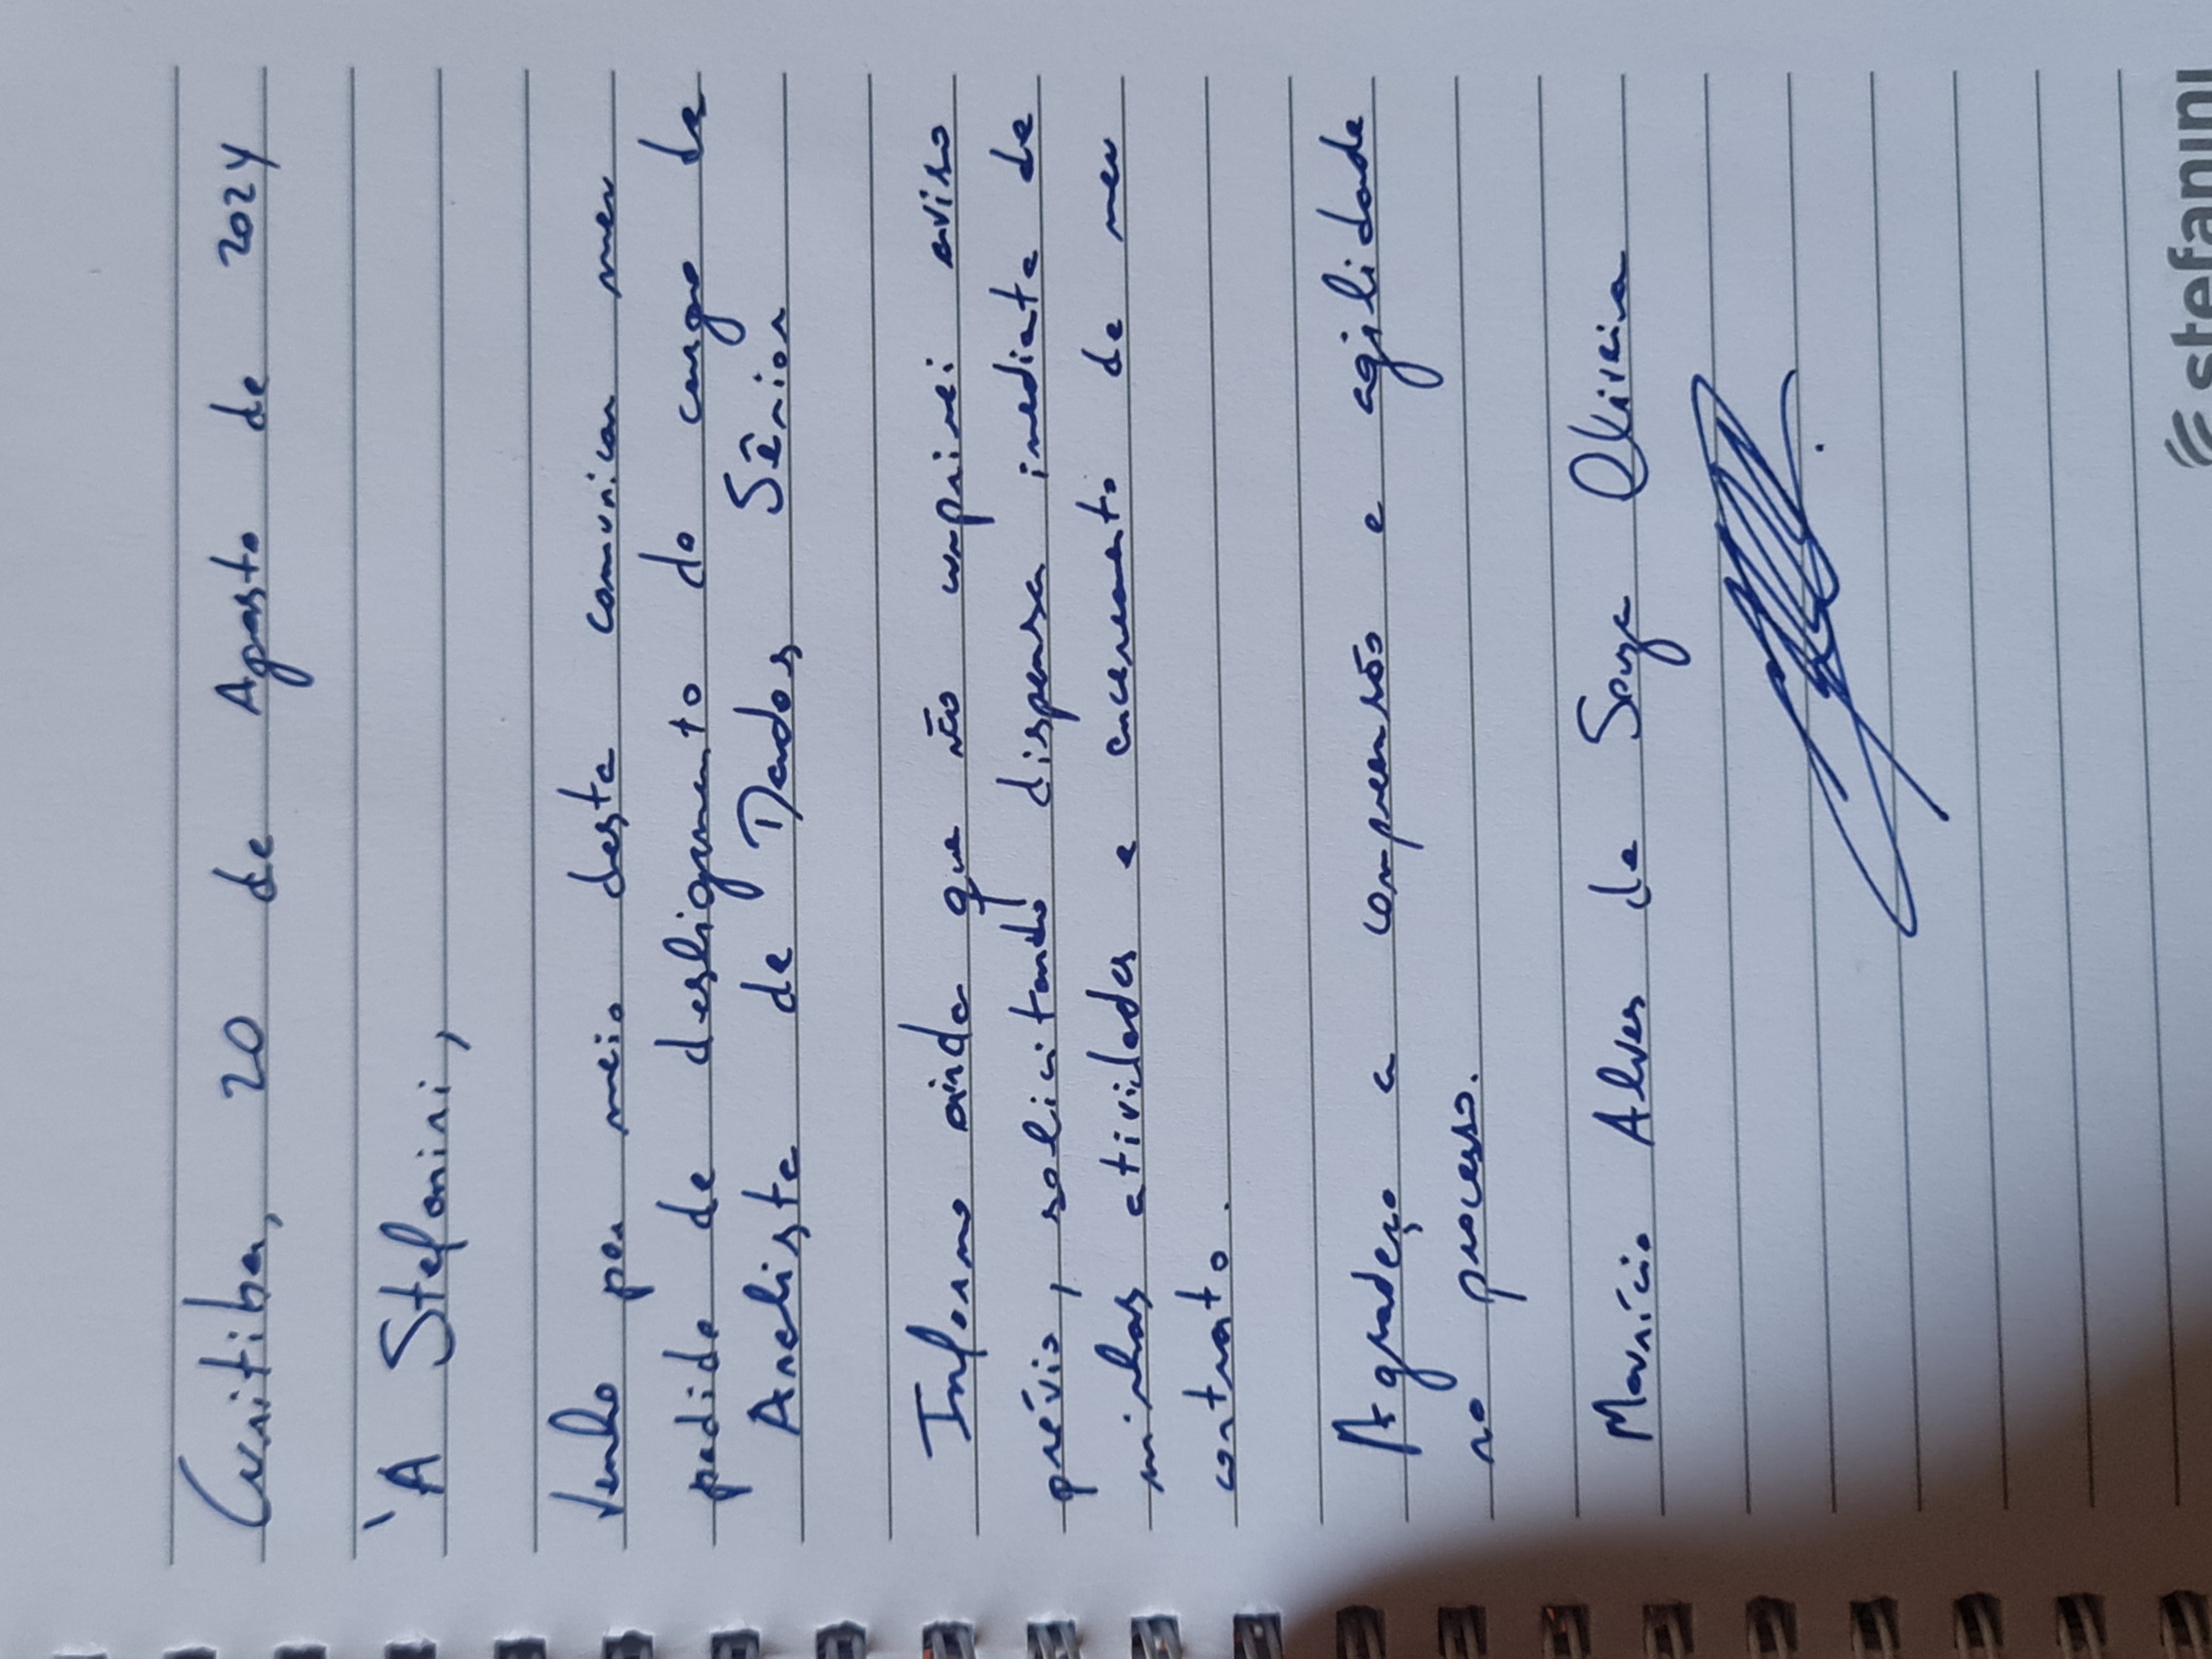 Curitiba, 20 de Agosto de 2024
À Stefanini,
Venho por meio desta comunicar meu
pedido de desligamento do cargo de
Analista de Dados Sênior
Informo ainda que não cumprirei aviso
prévio, solicitando dispensa imediata de
minhas atividades e encerramento de meu
contrato.
Agradeço a compreensão e agilidade
no processo.
Maurício Alves de Souza Oliveira
stefanini